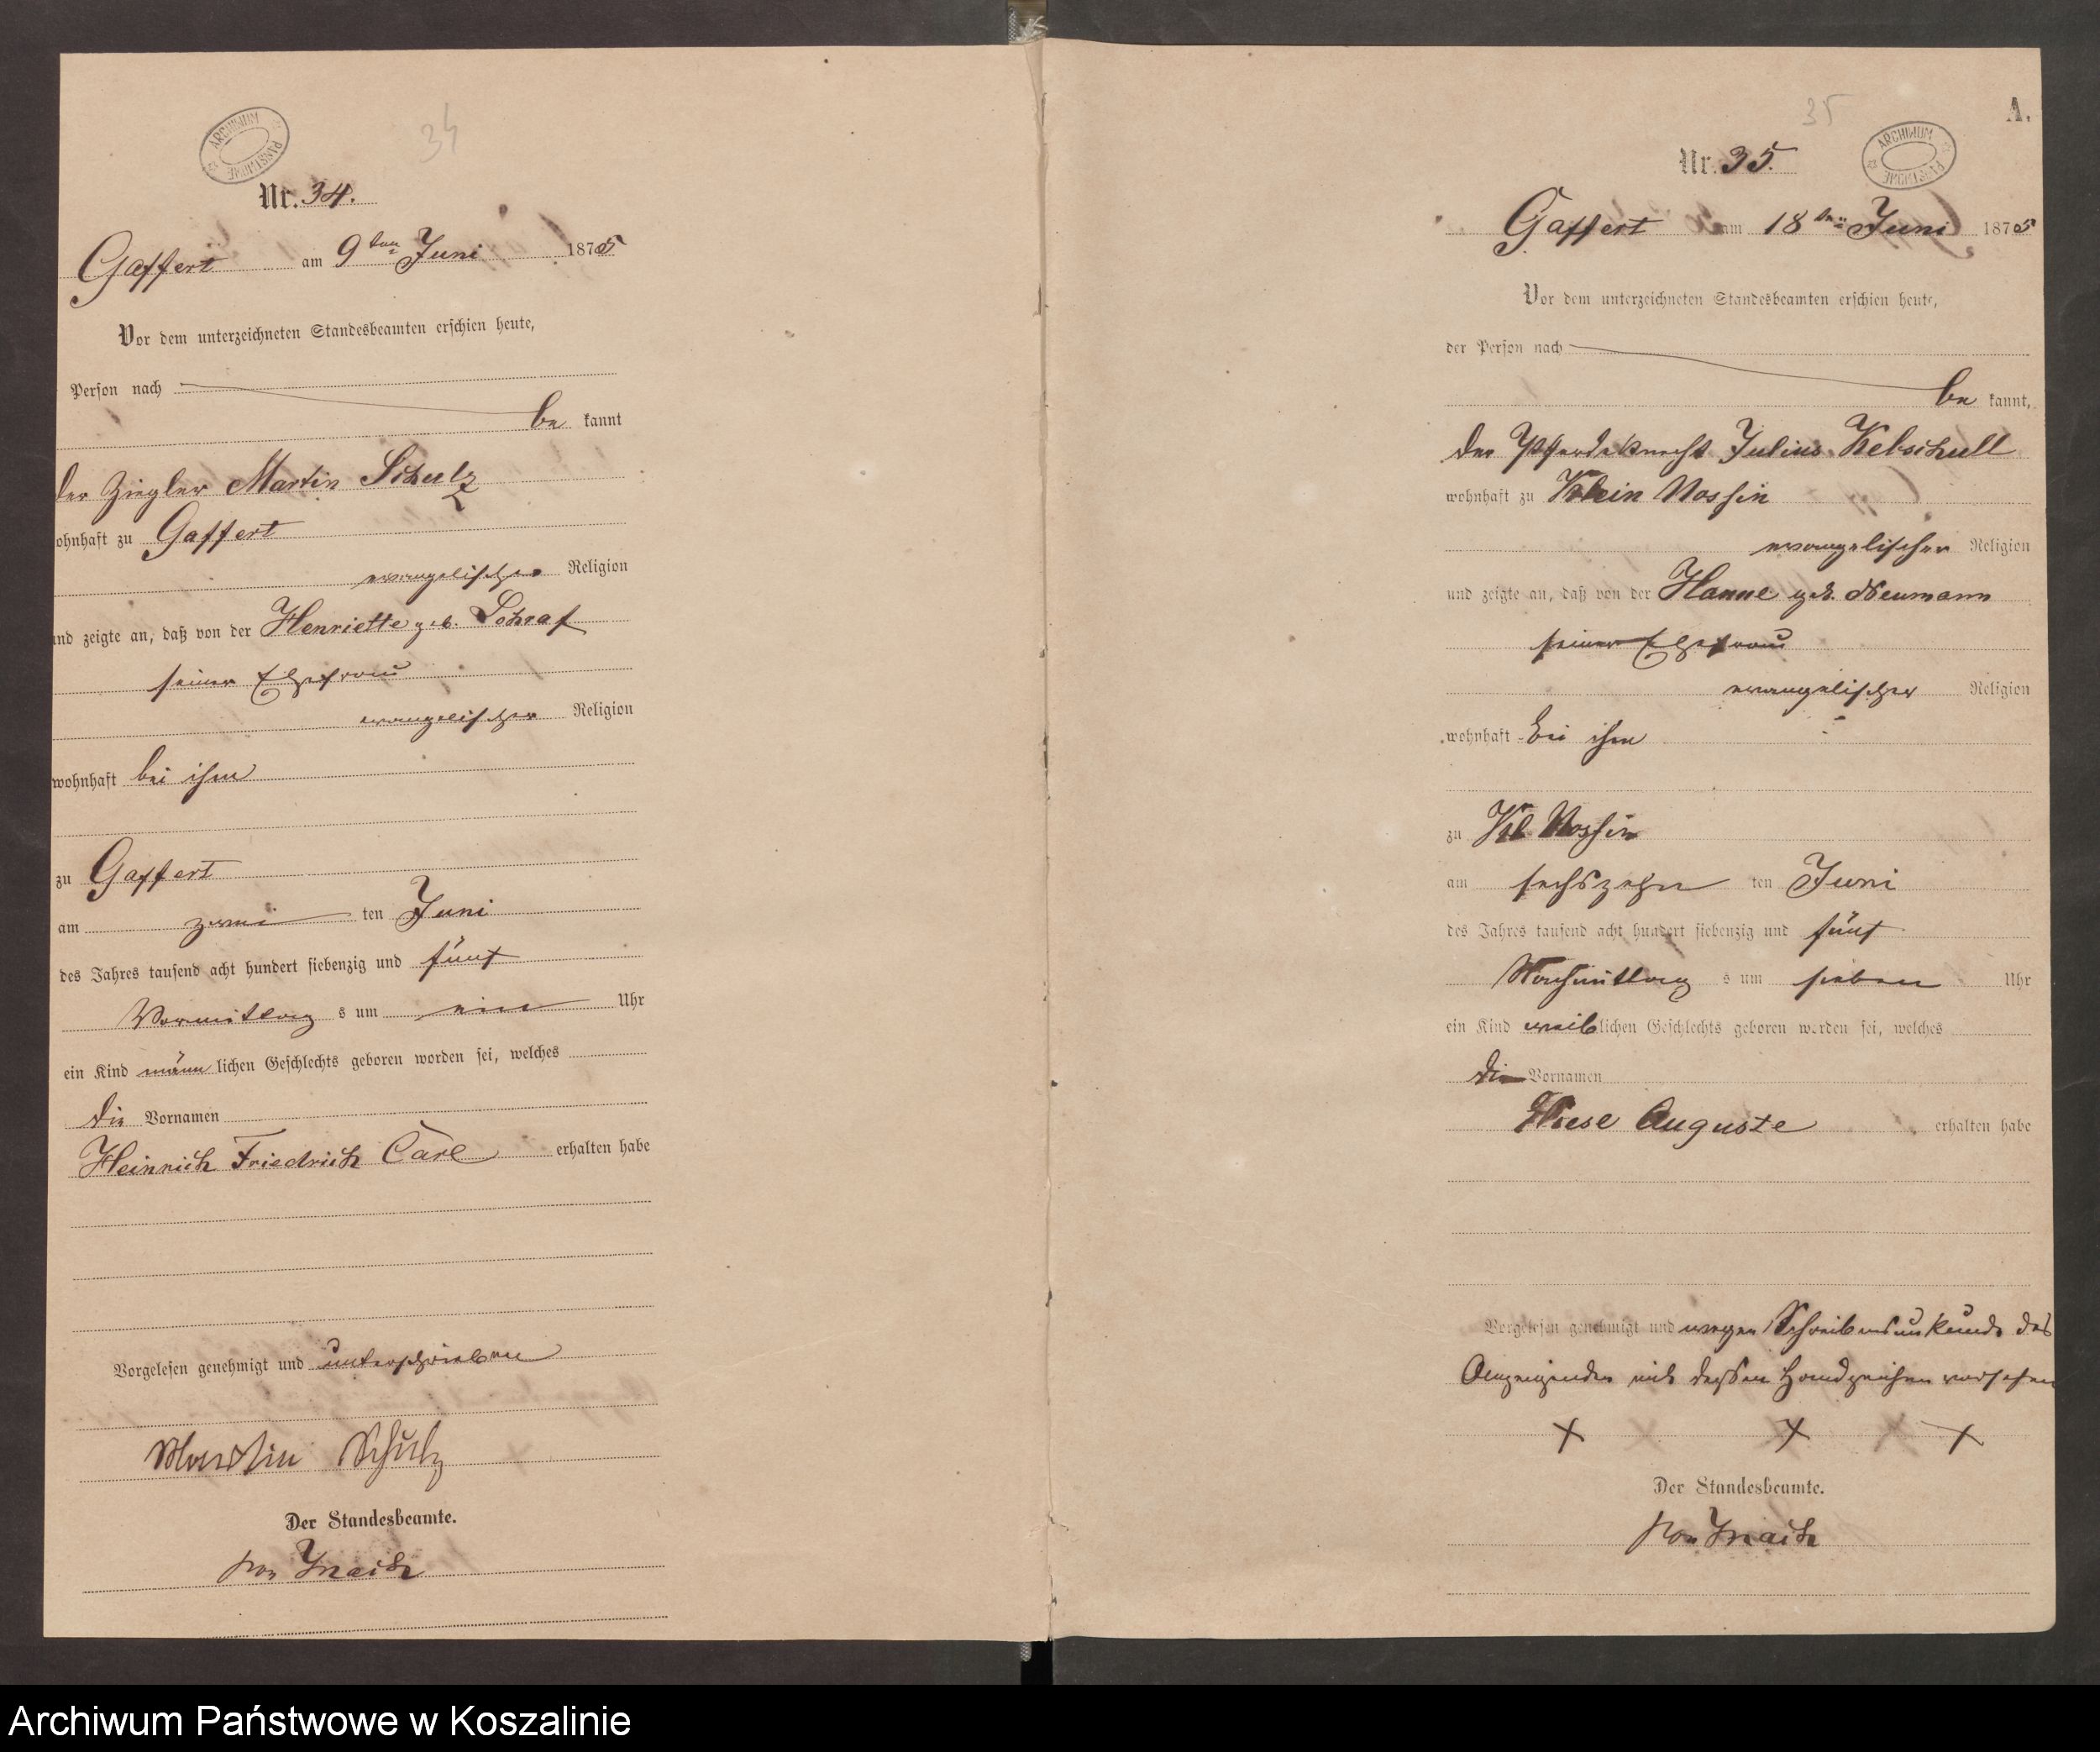 ARCHIWUM PAŃSTWOWE
34
Nr. 34.
Gaffert am 9ten Juni 1875
Vor dem unterzeichneten Standesbeamten erschien heute,
Person nach
be kannt
der Ziegler Martin Schulz
ohnhaft zu Gaffert
evangelischer Religion
und zeigte an, daß von der Henriette geb. Schraf
seiner Ehefrau
evangelischer Religion
wohnhaft bei ihm
zu Gaffert
am zwei ten Juni
des Jahres tausend acht hundert siebenzig und fünf
Vormittag s um ein Uhr
ein Kind männ lichen Geschlechts geboren worden sei, welches
die Vornamen
Heinrich Friedrich Carl erhalten habe
Vorgelesen genehmigt und unterschrieben
Martin Schulz
Der Standesbeamte.
von
A.
35
Nr. 35.
ARCHIWUM PAŃSTWOWE
Gaffert am 18ten Juni 1875
Vor dem unterzeichneten Standesbeamten erschien heute,
der Person nach
be kannt,
der Pferdeknecht Julius Kebschull
wohnhaft zu Klein Nossin
evangelischer Religion
und zeigte an, daß von der Hanne geb. Neumann
seiner Ehefrau
evangelischer Religion
wohnhaft bei ihm
zu Kl Nossin
am sechszehn ten Juni
des Jahres tausend acht hundert siebenzig und fünf
Nachmittag s um sieben Uhr
ein Kind weib lichen Geschlechts geboren worden sei, welches
die Vornamen
Auguste erhalten habe
Vorgelesen genehmigt und wegen Schreibensunkunde des
Anzeigenden mit dessen Handzeichen versehen
X X X
Der Standesbeamte.
von
Archiwum Państwowe w Koszalinie